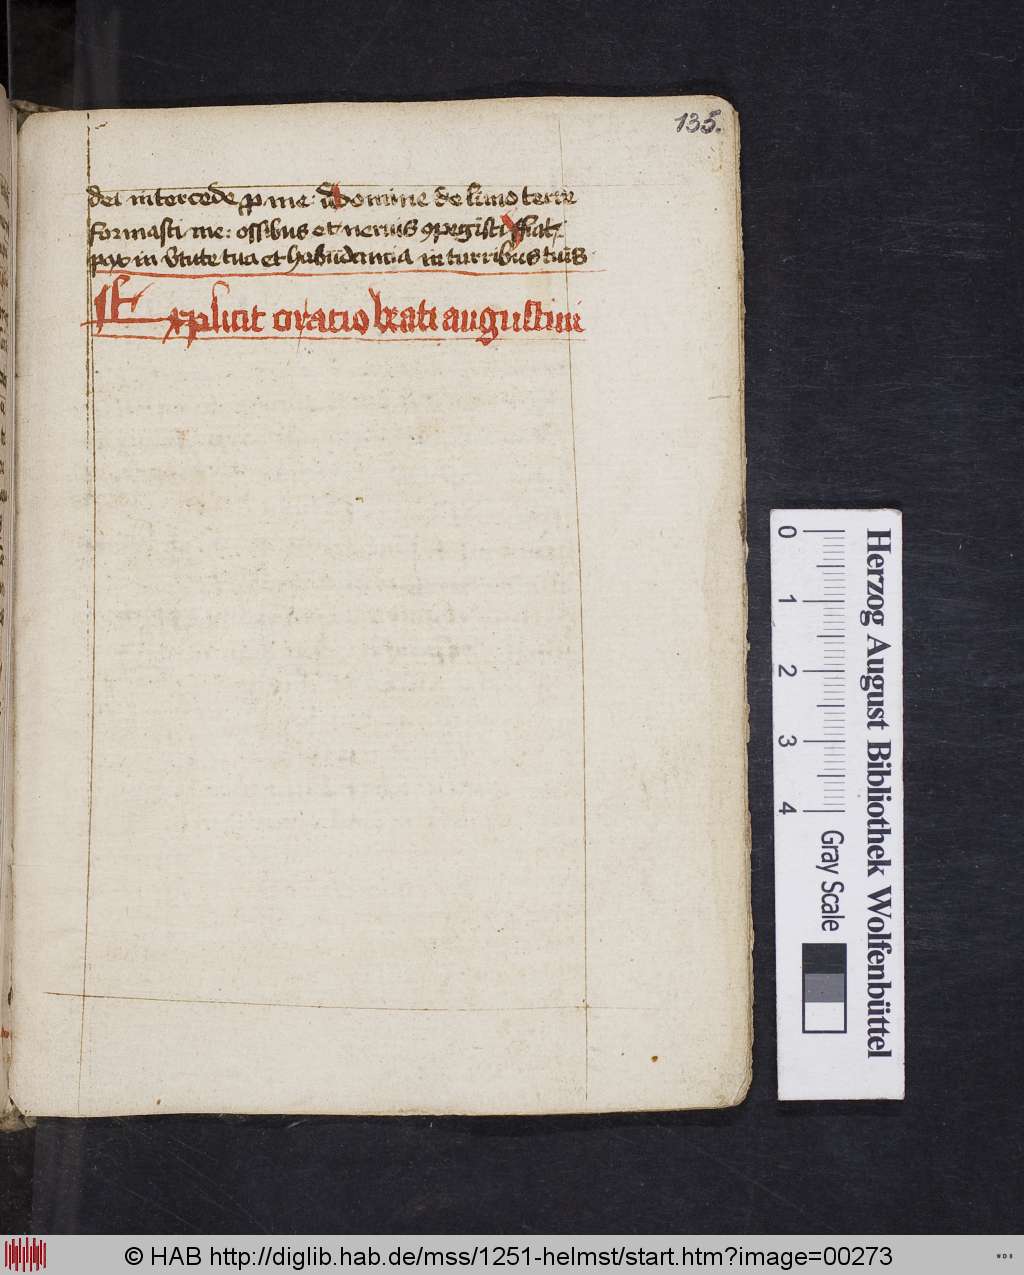 135.
dei intercede p me v̄ Domine de limo terre
formasti me: ossibus et neruis ꝯpegisti ffiat
pax in v̄tute tua et habūdancia in turribus tuis
Explicit oratio beati augustini
Herzog August Bibliothek Wolfenbüttel
0 1 2 3 4
Gray Scale
© HAB http://diglib.hab.de/mss/1251-helmst/start.htm?image=00273